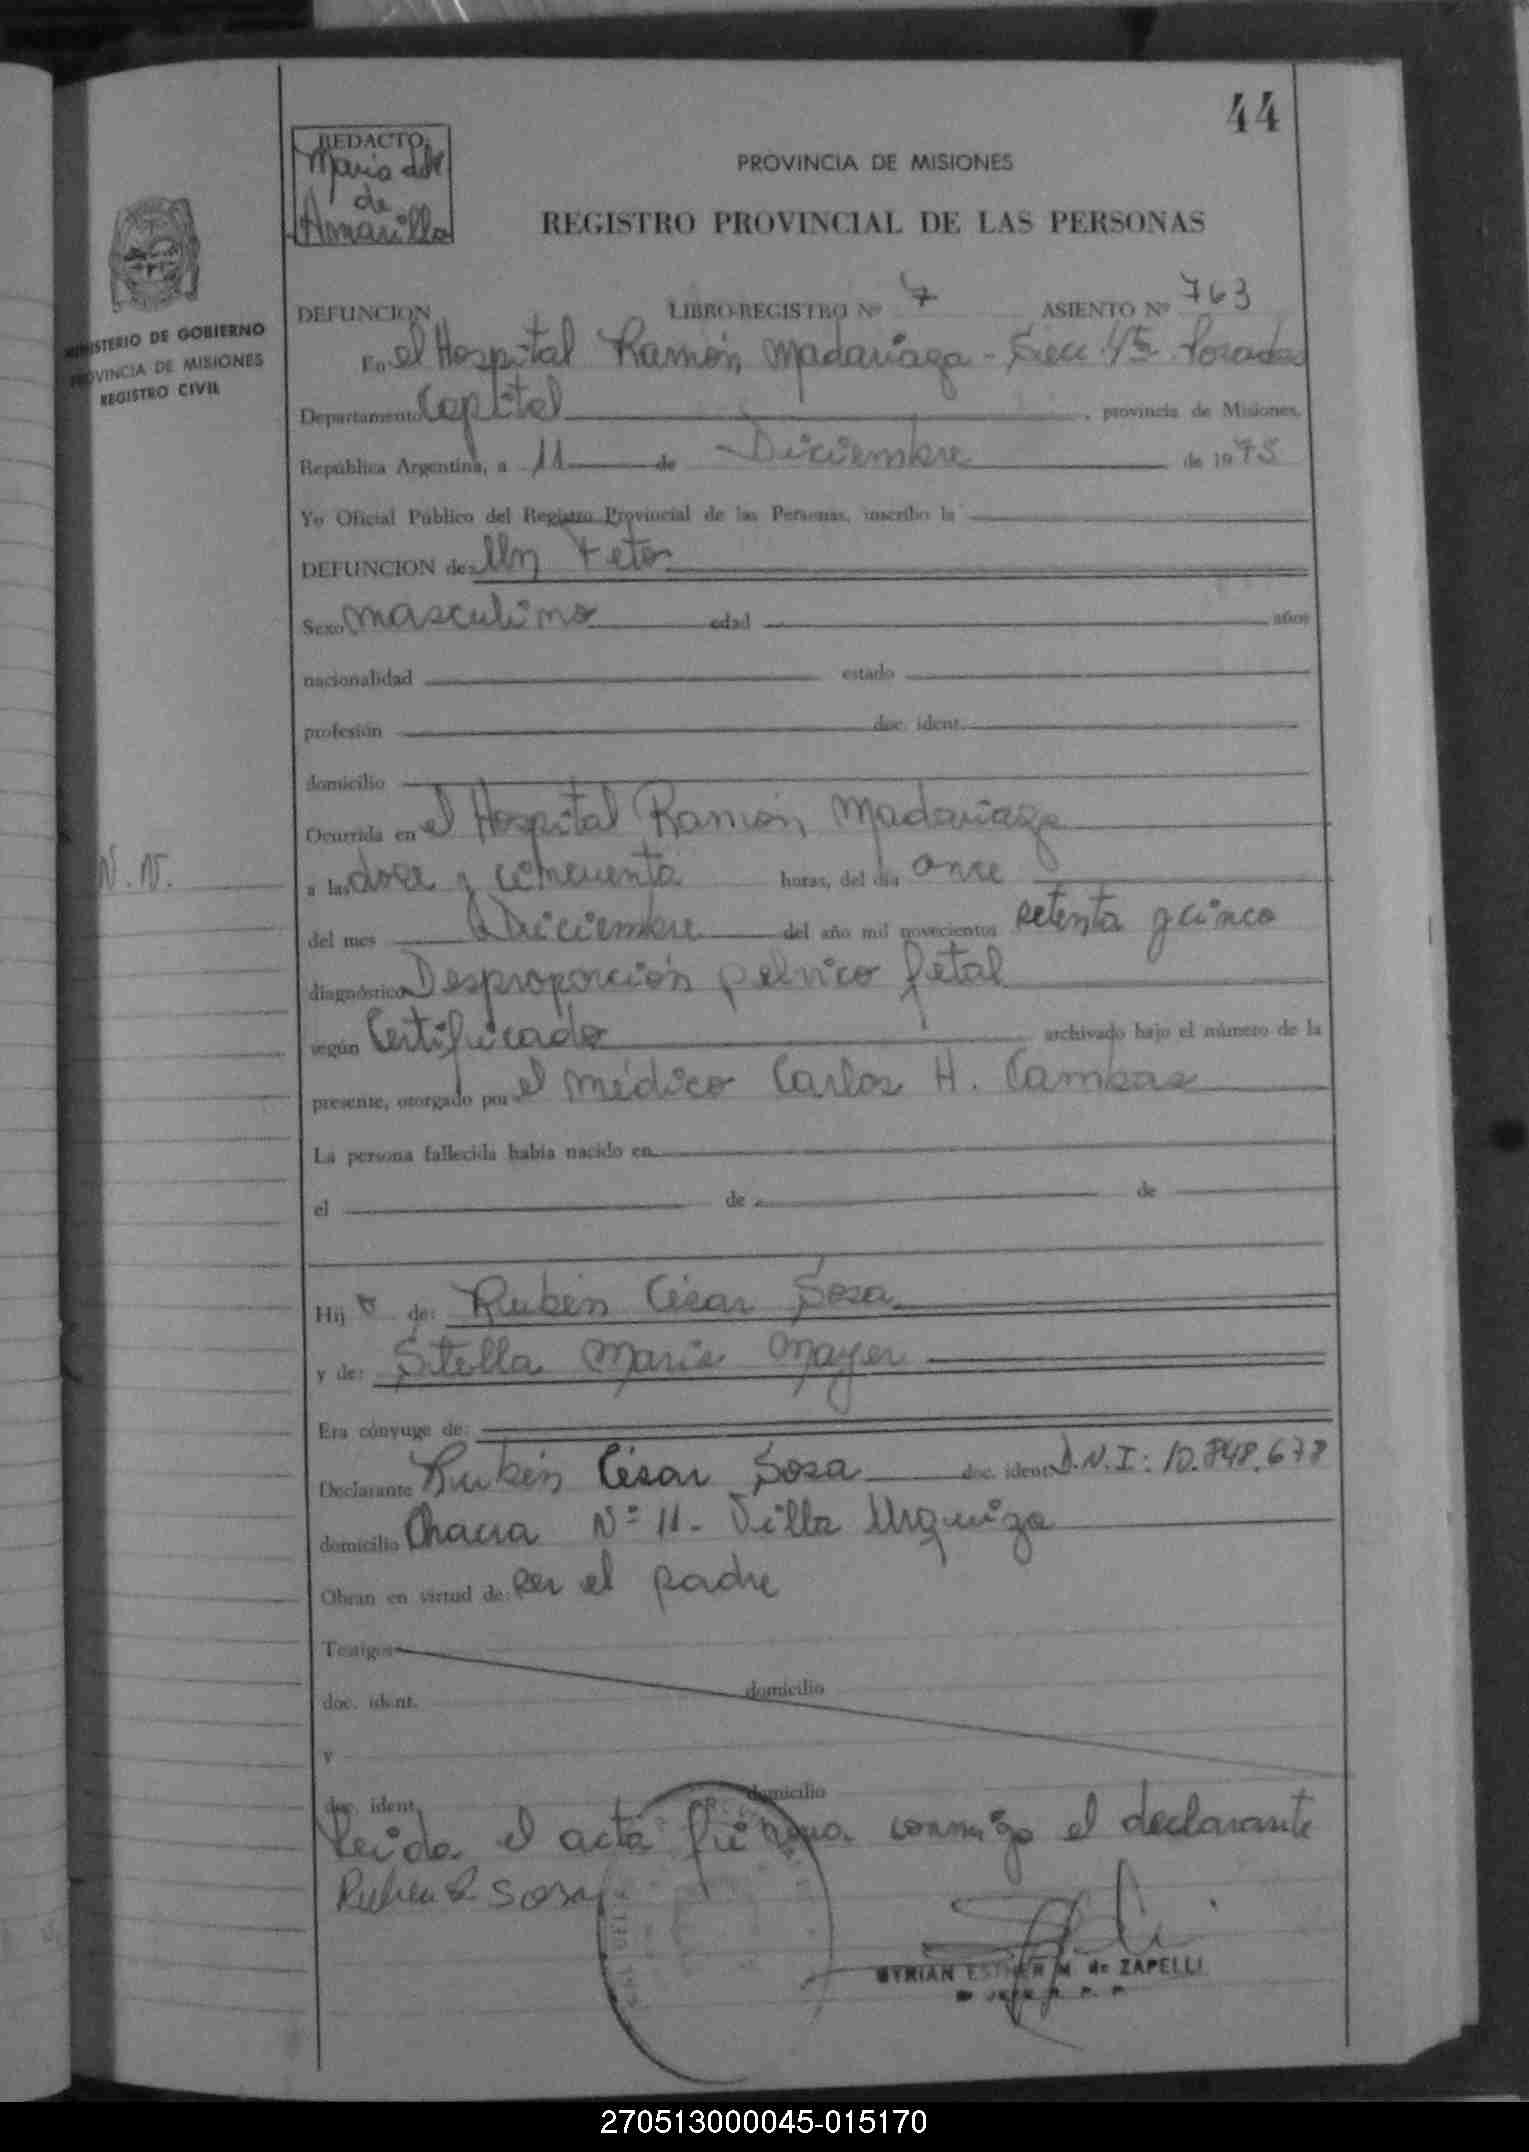 44
REDACTO
Maria del
de
Amarilla
PROVINCIA DE MISIONES
REGISTRO PROVINCIAL DE LAS PERSONAS
MINISTERIO DE GOBIERNO
PROVINCIA DE MISIONES
REGISTRO CIVIL
DEFUNCION LIBRO-REGISTRO Nº 7 ASIENTO Nº 763
En el Hospital Ramón Madariaga - Secc. Posadas
Departamento Capital, provincia de Misiones,
República Argentina, a 11 de Diciembre de 1975
Yo Oficial Público del Registro Provincial de las Personas, inscribo la
DEFUNCION de: Un Feto
Sexo masculino edad años
nacionalidad estado
profesión doc. ident.
domicilio
Ocurrida en el Hospital Ramón Madariaga
N.N.
a las doce y cincuenta horas, del día once
del mes Diciembre del año mil novecientos setenta y cinco
diagnóstico Desproporción pelvico fetal
según Certificado archivado bajo el número de la
presente, otorgado por el médico Carlos H. Cambas
La persona fallecida había nacido en
el de de
Hijo de: Rubén César Sosa
y de: Stella Maris Mayer
Era cónyuge de:
Declarante Rubén César Sosa doc. ident. D.N.I: 10.848.678
domicilio Chacra Nº 11 - Villa Urquiza
Obran en virtud de: ser el padre
Testigos
doc. ident. domicilio
y
doc. ident. domicilio
Leida el acta firma conmigo el declarante
Ruben C. Sosa
MYRIAN ESTHER M. de ZAPELLI
270513000045-015170